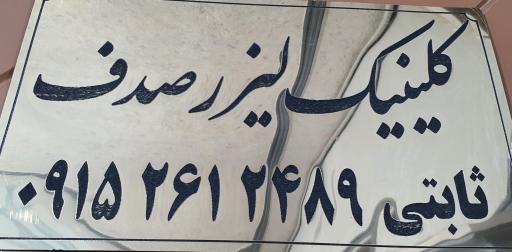 کلینیک لیزر صدف
ثابتی ۰۹۱۵ ۲۶۱ ۲۴۸۹